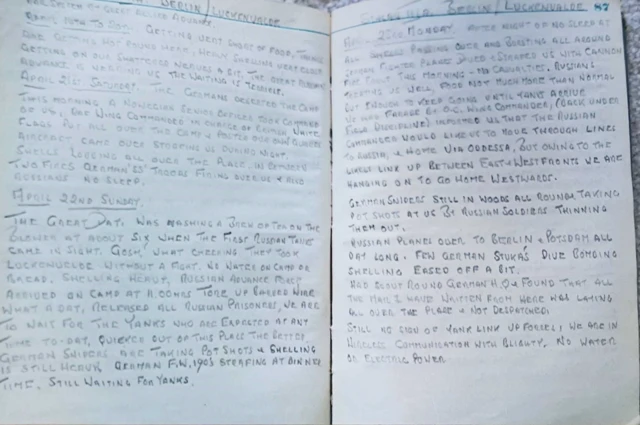 BERLIN / LUCKENWALDE
OF GREAT ALLIED ADVANCE.
APRIL 19TH TO 20TH. GETTING VERY SHORT OF FOOD, THINGS
ARE GETTING HOT ROUND HERE, HEAVY SHELLING VERY CLOSE
GETTING ON OUR SHATTERED NERVES A BIT. THE GREAT RUSSIAN
ADVANCE IS NEARING US THE WAITING IS TERRIBLE.
APRIL 21ST. SATURDAY. THE GERMANS DESERTED THE CAMP
THIS MORNING A NORWEGIAN SENIOR OFFICER TOOK COMMAND
OF US, OUR WING COMMANDER IN CHARGE OF BRITISH WHITE
FLAGS PUT ALL OVER THE CAMP & POSTED OUR OWN GUARDS
AIRCRAFT CAME OVER STRAFING US DURING NIGHT.
SHELLS LOBBING ALL OVER THE PLACE, IN BETWEEN
TWO FIRES GERMAN TROOPS FIRING OVER US & ALSO
RUSSIANS NO SLEEP.
APRIL 22ND SUNDAY.
THE GREAT DAY. WAS MASHING A BREW OF TEA ON THE
BLOWER AT ABOUT SIX WHEN THE FIRST RUSSIAN TANKS
CAME IN SIGHT. GOSH, WHAT CHEERING THEY TOOK
LUCKENWALDE WITHOUT A FIGHT. NO WATER ON CAMP OR
BREAD. SHELLING HEAVY, RUSSIAN ADVANCE FORCE
ARRIVED ON CAMP AT TORE UP BARBED WIRE
WHAT A DAY, RELEASED ALL RUSSIAN PRISONERS, WE ARE
TO WAIT FOR THE YANKS WHO ARE EXPECTED AT ANY
TIME TO-DAY, QUICKER OUT OF THIS PLACE THE BETTER
GERMAN SNIPERS ARE TAKING POT SHOTS & SHELLING
IS STILL HEAVY. GERMAN F.W. 190'S STRAFING AT DINNER
TIME, STILL WAITING FOR YANKS.
STALAG IIIA. BERLIN / LUCKENWALDE 87
APRIL 23RD MONDAY. AFTER NIGHT OF NO SLEEP AT
ALL SHELLS PASSING OVER AND BURSTING ALL AROUND
GERMAN FIGHTER PLANES DIVED & STRAFED US WITH CANNON
FIRE ABOUT THIS MORNING – NO CASUALTIES, RUSSIANS
TREATING US WELL, FOOD NOT MUCH MORE THAN NORMAL
BUT ENOUGH TO KEEP GOING UNTIL YANKS ARRIVE
WE HAD PARADE BY O.C. WING COMMANDER, (BACK UNDER
FULL DISCIPLINE) INFORMED US THAT THE RUSSIAN
COMMANDER WOULD LIKE US TO MOVE THROUGH LINES
TO RUSSIA, & HOME VIA ODDESSA, BUT OWING TO THE
LIKELY LINK UP BETWEEN EAST & WEST FRONTS WE ARE
HANGING ON TO GO HOME WESTWARDS.
GERMAN SNIPERS STILL IN WOODS ALL ROUND, TAKING
POT SHOTS AT US BY RUSSIAN SOLDIERS THINNING
THEM OUT.
RUSSIAN PLANES OVER TO BERLIN & POTSDAM ALL
DAY LONG. FEW GERMAN STUKAS DIVE BOMBING
SHELLING EASED OFF A BIT.
HAD SCOUT ROUND GERMAN H.Q & FOUND THAT ALL
THE MAIL I HAVE WRITTEN FROM HERE WAS LAYING
ALL OVER THE PLACE & NOT DESPATCHED!
STILL NO SIGN OF YANK LINK UP FORCE; WE ARE IN
WIRELESS COMMUNICATION WITH BLIGHTY. NO WATER
OR ELECTRIC POWER